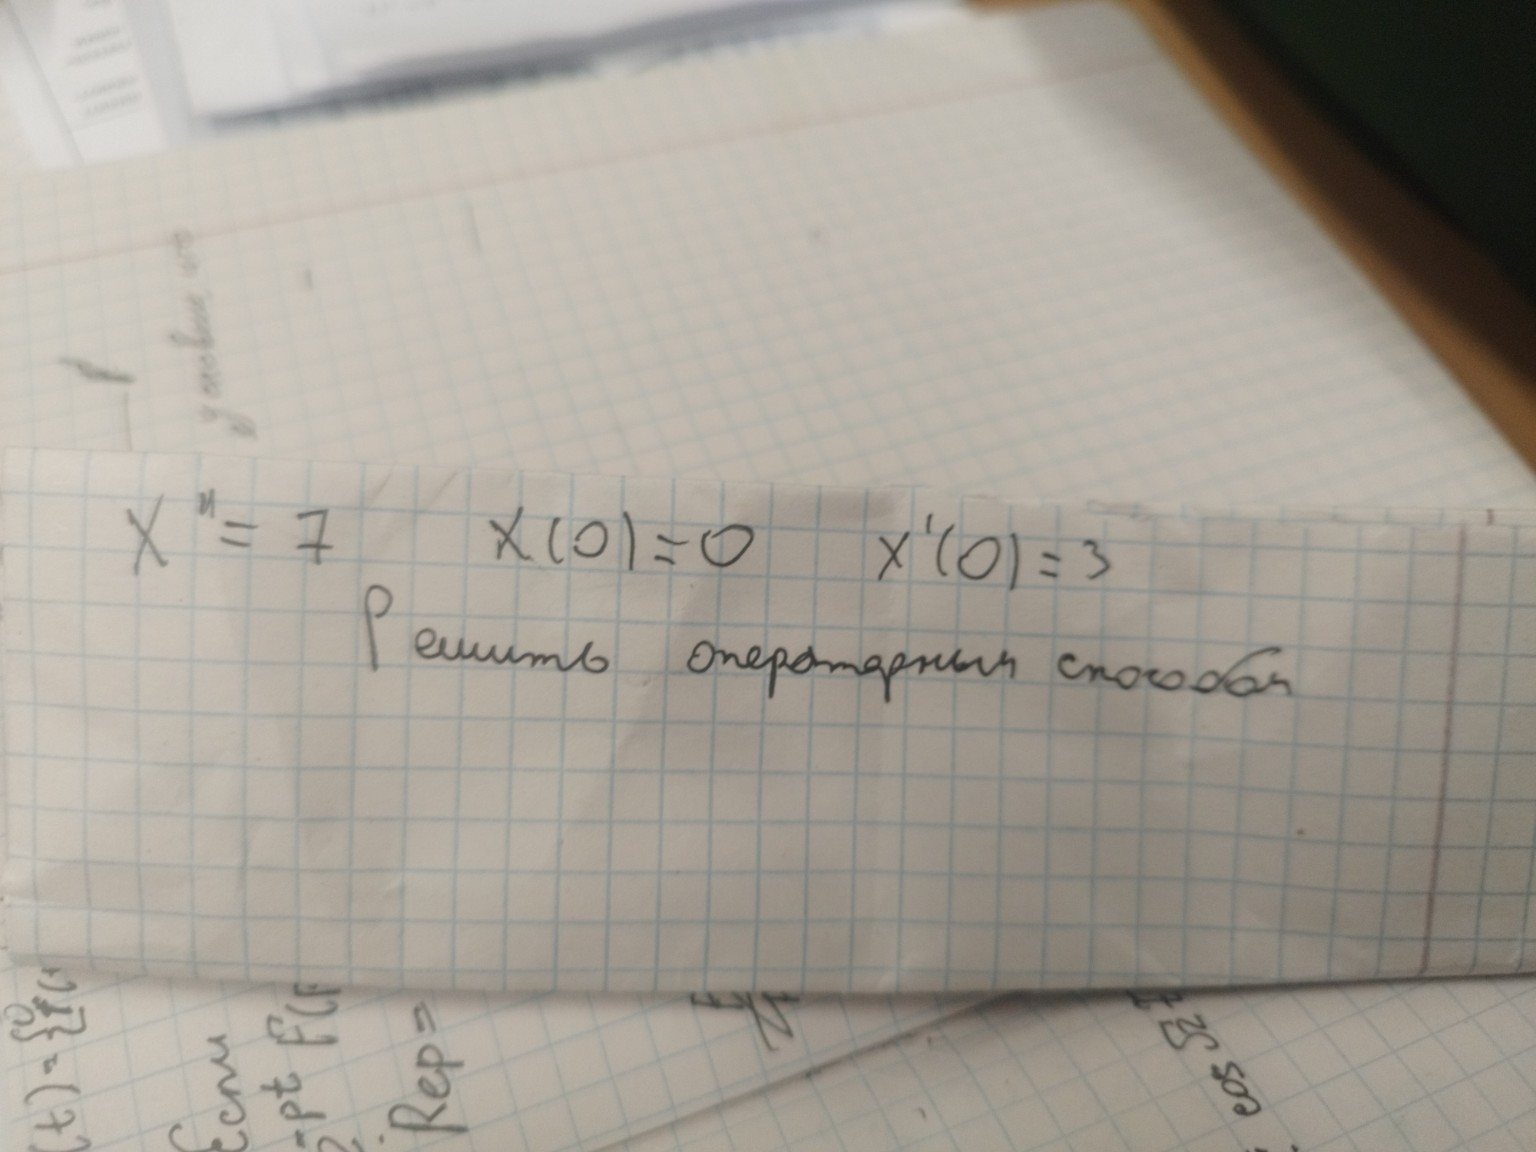 X'' = 7 X(0)=0 X'(0)=3
Решить операторным способом
p
условие
(t)={
Если
-pt F(p
Rep=
cos